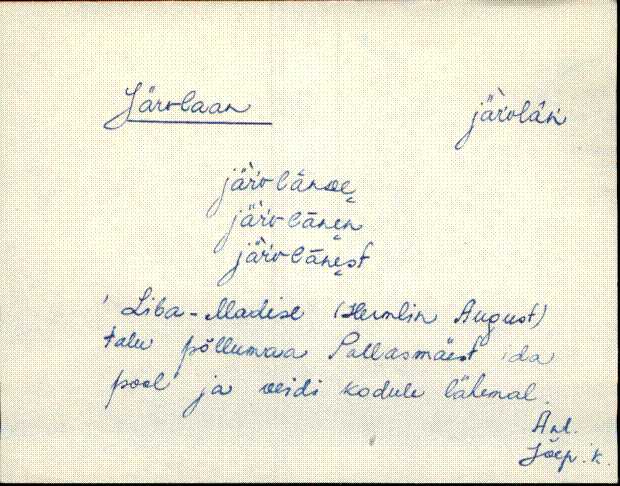 Järvlaan järvlāń
järvlānde
järvlānen
järvlānest
Liba-Madise (Hermlin August)
talu põllumaa Pallasmäest ida
pool ja veidi kodule lähemal.
Ant.
Jõep. k.